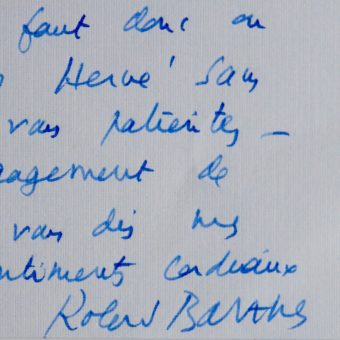 faut donc on
Hervé sans
vous patientez –
agement de
vous dis mes
ntiments cordiaux
Roland Barthes